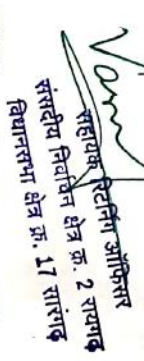 सहायक रिटर्निंग ऑफिसर
संसदीय निर्वाचन क्षेत्र क्र. 2 रायगढ़
विधानसभा क्षेत्र क्र. 17 सारंगढ़